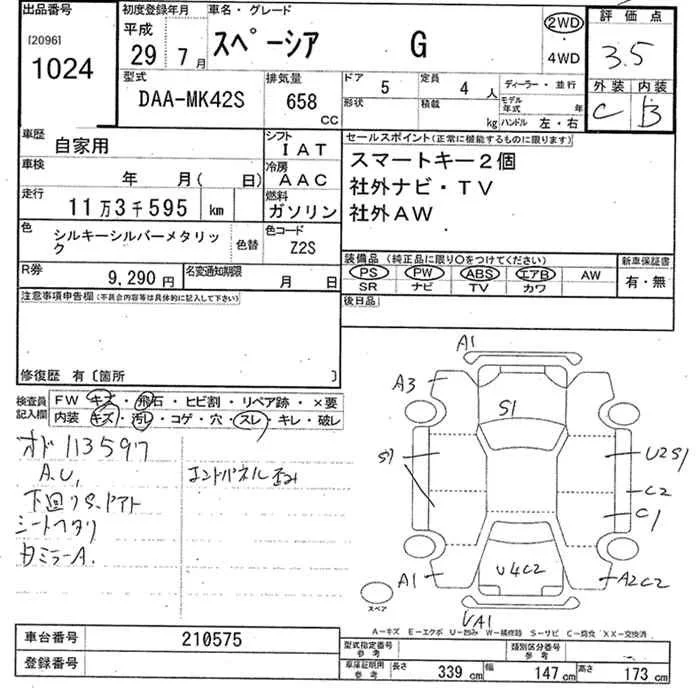 出品番号 初度登録年月 車名・グレード 評価点
[2096] 平成
1024 29年 7月 スペーシア G 2WD 4WD 3.5
型式 排気量 ドア 5 定員 4人 ディーラー・並行 外装 内装
DAA-MK42S 658 CC 形状 積載 kg モデル年式 年 C B
ハンドル 左・右
車歴 自家用 シフト IAT セールスポイント(正常に機能するものに限ります)
車検 年 月( 日) 冷房 AAC スマートキー2個
走行 11万3千595 km 燃料 ガソリン 社外ナビ・TV
社外AW
色 シルキーシルバーメタリック 色替 色コード Z2S
装備品(純正品に限り○をつけてください) 新車保証書
R券 9,290円 名変通知期限 月 日 PS PW ABS エアB AW 有・無
SR ナビ TV カワ
注意事項申告欄(不具合内容等は具体的に記入して下さい) 後日品
修復歴 有〔箇所 〕
検査員記入欄 FW キズ・飛石・ヒビ割・リペア跡・×要
内装 キズ・汚レ・コゲ・穴・スレ・キレ・破レ
オド 113597
A.U, エンドパネル歪み
シートヘタリ
ミラーA.
A1
A3
S1
S7
U2S1
C2
C1
A1
U4C2
A2C2
スペア
UA1
A−キズ E−エクボ U−凹み W−補修跡 S−サビ C−腐食 XX−交換済
車台番号 210575 型式指定番号 参考 類別区分番号 参考
登録番号 車庫証明用 参考 長さ 339 cm 幅 147 cm 高さ 173 cm